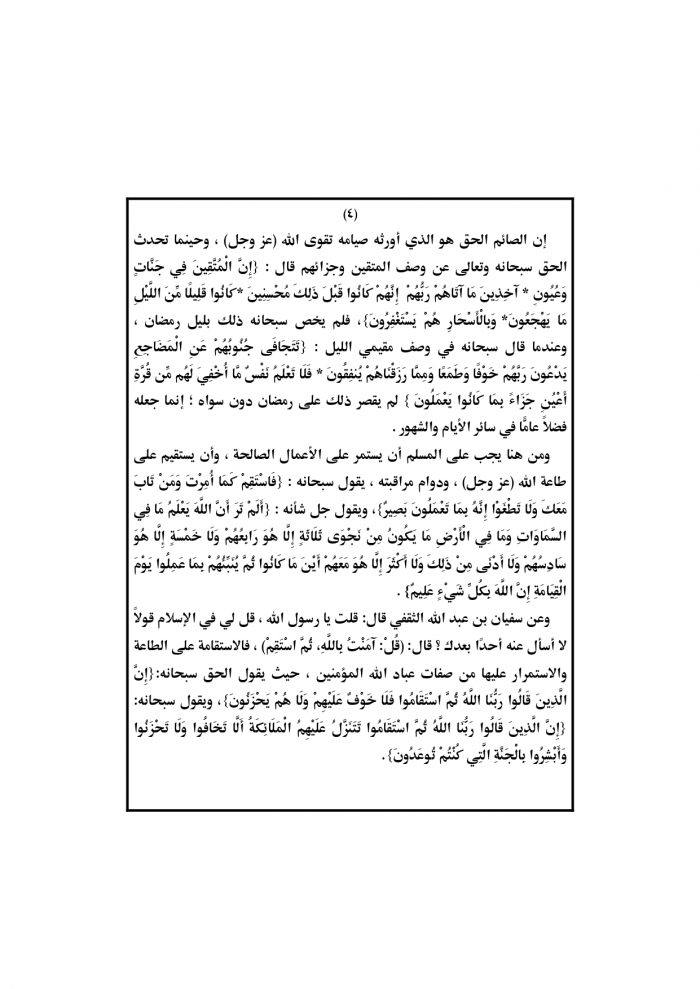 (٤)
إن الصائم الحق هو الذي أورثه صيامه تقوى الله (عز وجل) ، وحينما تحدث
الحق سبحانه وتعالى عن وصف المتقين وجزائهم قال : {إِنَّ الْمُتَّقِينَ فِي جَنَّاتٍ
وَعُيُونٍ * آخِذِينَ مَا آتَاهُمْ رَبُّهُمْ إِنَّهُمْ كَانُوا قَبْلَ ذَلِكَ مُحْسِنِينَ *كَانُوا قَلِيلًا مِّنَ اللَّيْلِ
مَا يَهْجَعُونَ* وَبِالْأَسْحَارِ هُمْ يَسْتَغْفِرُونَ}، فلم يخص سبحانه ذلك بليل رمضان ،
وعندما قال سبحانه في وصف مقيمي الليل : {تَتَجَافَى جُنُوبُهُمْ عَنِ الْمَضَاجِعِ
يَدْعُونَ رَبَّهُمْ خَوْفًا وَطَمَعًا وَمِمَّا رَزَقْنَاهُمْ يُنفِقُونَ * فَلَا تَعْلَمُ نَفْسٌ مَّا أُخْفِيَ لَهُم مِّن قُرَّةِ
أَعْيُنٍ جَزَاءً بِمَا كَانُوا يَعْمَلُونَ } لم يقصر ذلك على رمضان دون سواه ؛ إنما جعله
فضلاً عامًّا في سائر الأيام والشهور .
ومن هنا يجب على المسلم أن يستمر على الأعمال الصالحة ، وأن يستقيم على
طاعة الله (عز وجل) ، ودوام مراقبته ، يقول سبحانه : {فَاسْتَقِمْ كَمَا أُمِرْتَ وَمَنْ تَابَ
مَعَكَ وَلَا تَطْغَوْا إِنَّهُ بِمَا تَعْمَلُونَ بَصِيرٌ}، ويقول جل شأنه : {أَلَمْ تَرَ أَنَّ اللَّهَ يَعْلَمُ مَا فِي
السَّمَاوَاتِ وَمَا فِي الْأَرْضِ مَا يَكُونُ مِنْ نَجْوَى ثَلَاثَةٍ إِلَّا هُوَ رَابِعُهُمْ وَلَا خَمْسَةٍ إِلَّا هُوَ
سَادِسُهُمْ وَلَا أَدْنَى مِنْ ذَلِكَ وَلَا أَكْثَرَ إِلَّا هُوَ مَعَهُمْ أَيْنَ مَا كَانُوا ثُمَّ يُنَبِّئُهُمْ بِمَا عَمِلُوا يَوْمَ
الْقِيَامَةِ إِنَّ اللَّهَ بِكُلِّ شَيْءٍ عَلِيمٌ} .
وعن سفيان بن عبد الله الثقفي قال: قلت يا رسول الله ، قل لي في الإسلام قولاً
لا أسأل عنه أحدًا بعدك ؟ قال: (قُلْ: آمَنْتُ بِاللَّهِ، ثُمَّ اسْتَقِمْ) ، فالاستقامة على الطاعة
والاستمرار عليها من صفات عباد الله المؤمنين ، حيث يقول الحق سبحانه:{إِنَّ
الَّذِينَ قَالُوا رَبُّنَا اللَّهُ ثُمَّ اسْتَقَامُوا فَلَا خَوْفٌ عَلَيْهِمْ وَلَا هُمْ يَحْزَنُونَ}، ويقول سبحانه:
{إِنَّ الَّذِينَ قَالُوا رَبُّنَا اللَّهُ ثُمَّ اسْتَقَامُوا تَتَنَزَّلُ عَلَيْهِمُ الْمَلَائِكَةُ أَلَّا تَخَافُوا وَلَا تَحْزَنُوا
وَأَبْشِرُوا بِالْجَنَّةِ الَّتِي كُنْتُمْ تُوعَدُونَ}.